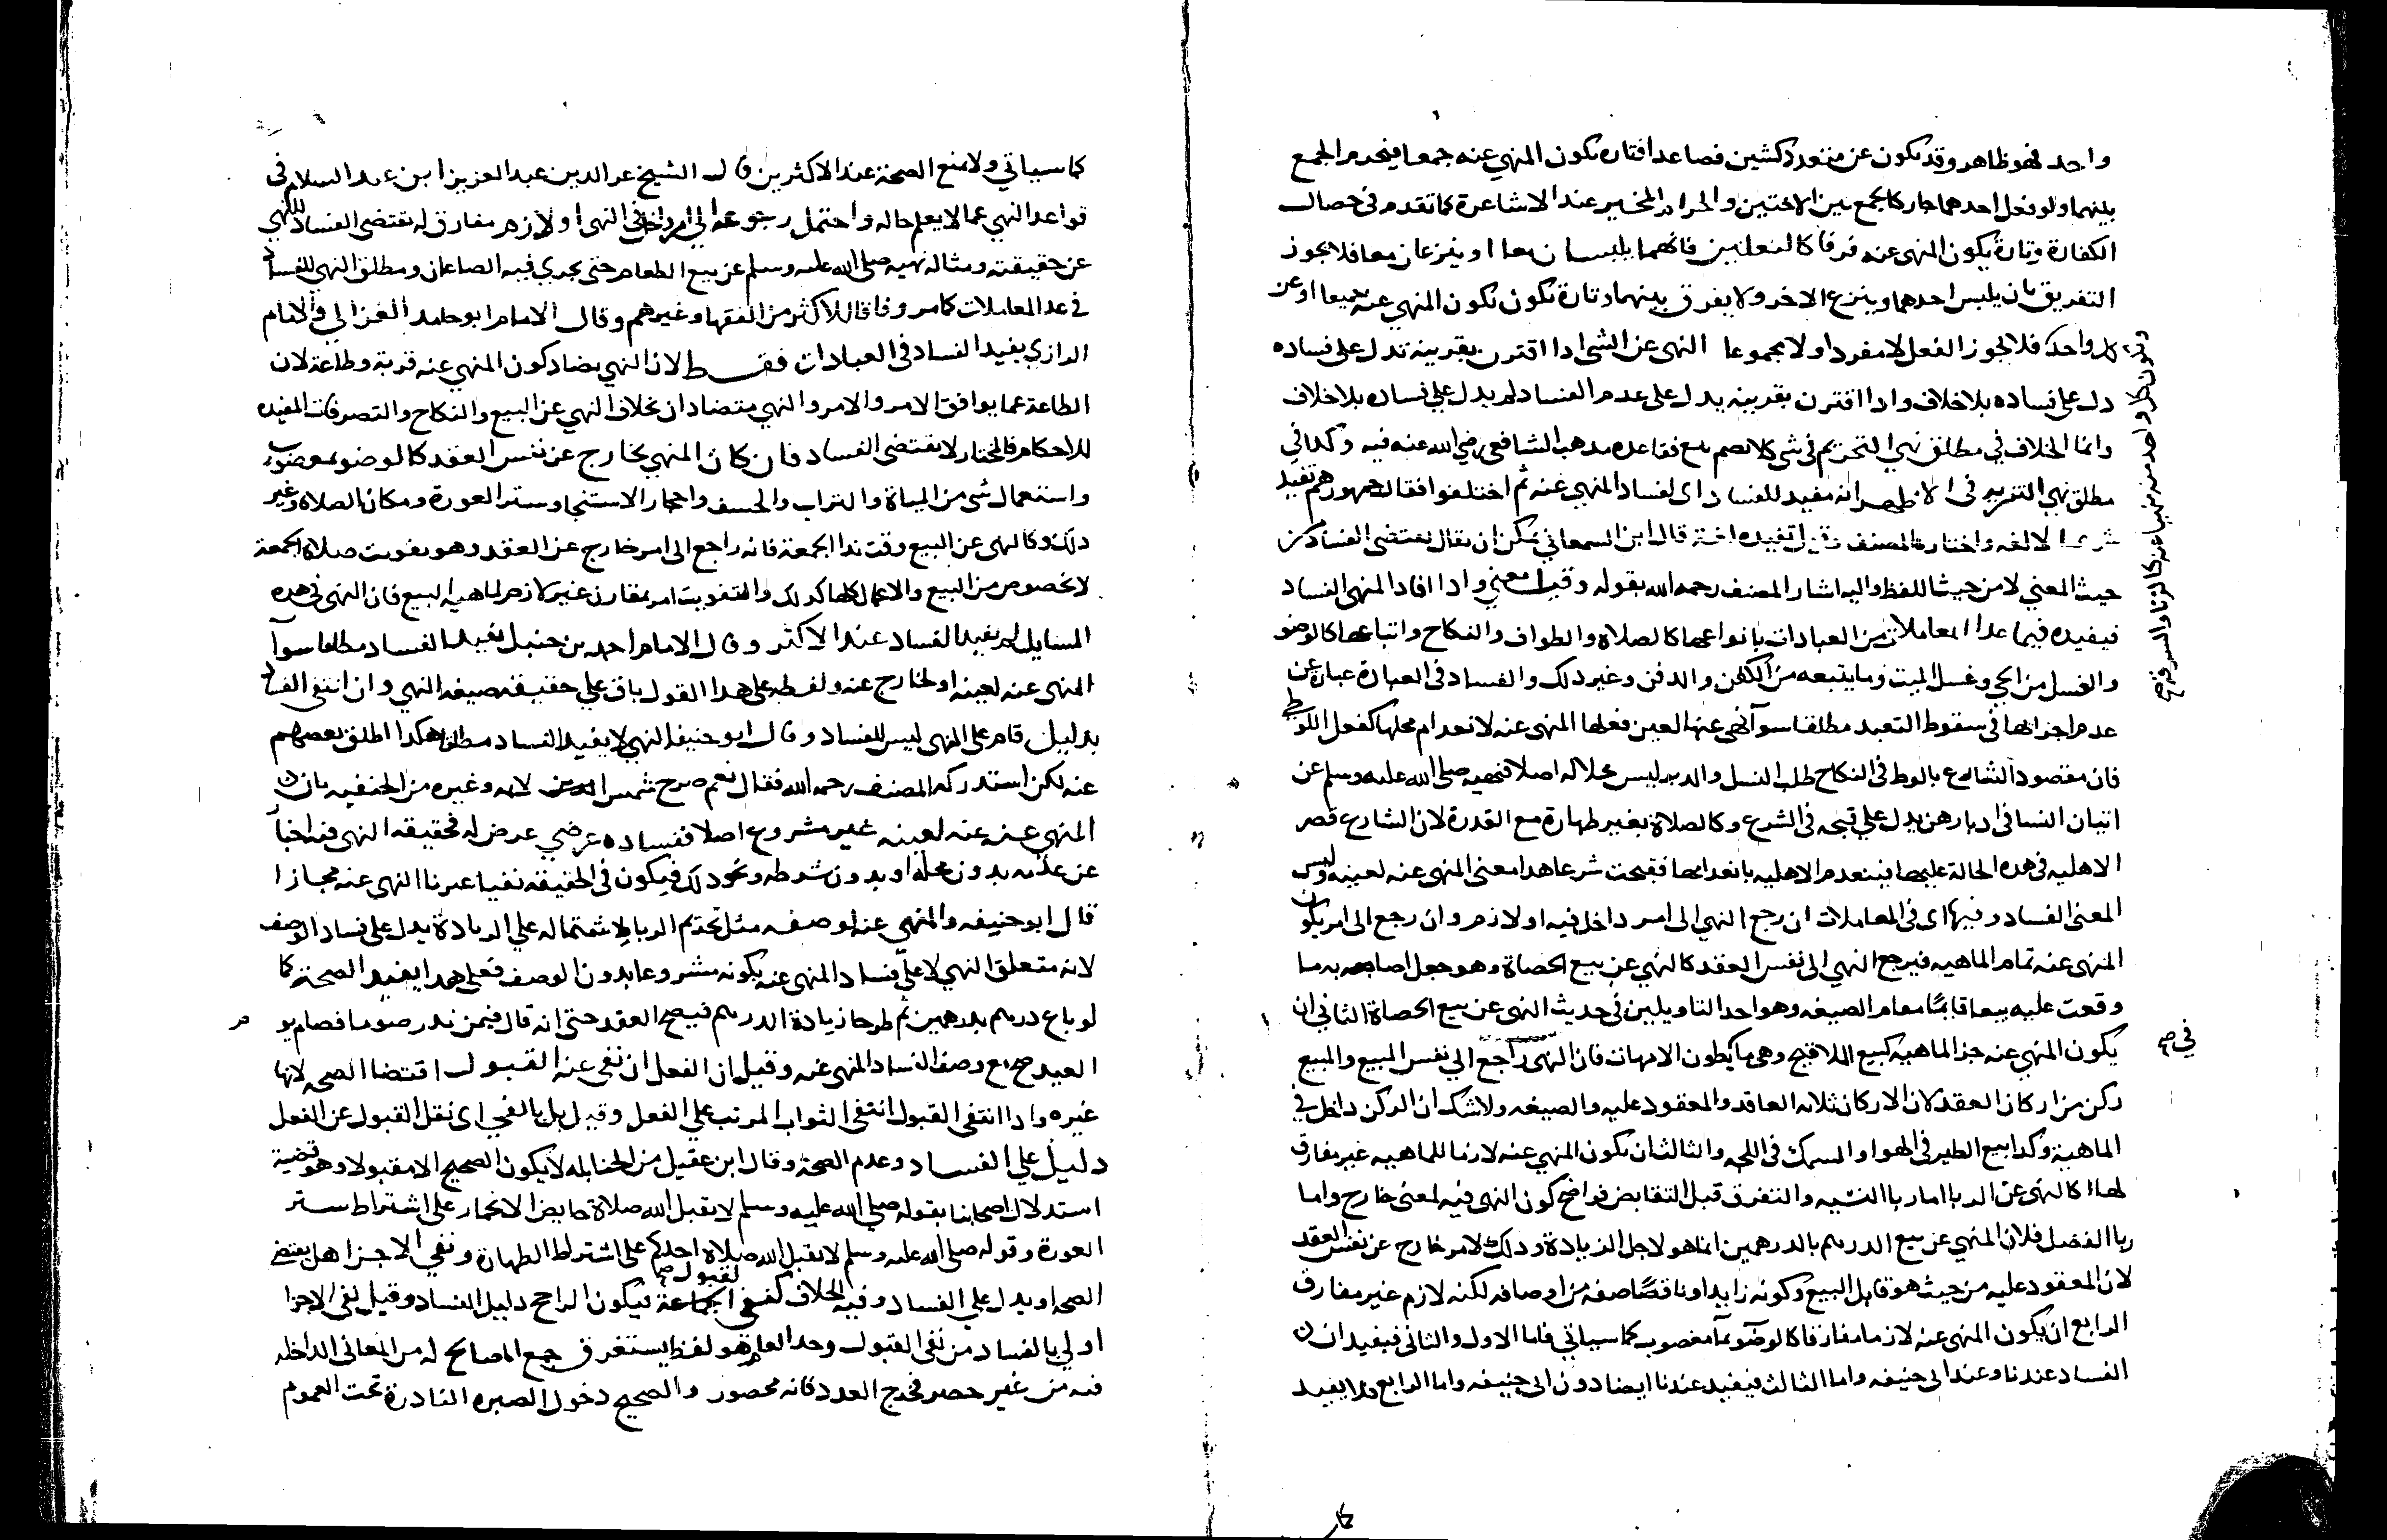 واحد فهو ظاهر وقد يكون عن متعدد كشيئين فصاعدا فتارة يكون المنهي عنه جمعا فيحرم الجمع
بينهما ولو فعل احدهما جاز كالجمع بين الاختين والحرام المخير عند الاشاعرة كما تقدم في خصال
الكفارة وتارة يكون المنهى عنه فرقا كالنعلين فانهما يلبسان معا او ينزعان معا فلا يجوز
التفريق بان يلبس احدهما وينزع الاخر ولا يفرق بينهما وتارة تكون تكون المنهي عنه جميعا اوعن
كل واحد فلا يجوز الفعل لا مفردا ولا مجموعا النهى عن الشى اذا اقترن بقرينة تدل على فساده
دل على فساده بلا خلاف واذا اقترن بقرينه يدل على عدم الفساد لم يدل على فساده بلا خلاف
وانما الخلاف في مطلق نهي التحريم فى شى كلا تصم مع فقاعده مذهب الشافعي رضي الله عنه فيه وكذا في
مطلق نهي التنزيه فى الاظهر انه مفيد للفساد اى لفساد المنهي عنه ثم اختلفوا فقال جمهورهم تفيد
شرعا لا لغه واختاره المصنف وقيل تفيده لغة قال ابن السمعاني يمكن ان يقال يقتضى الفساد من
حيث المعني لا من حيث اللفظ واليه اشار المصنف رحمه الله بقوله وقيل معني واذا افاد المنهى الفساد
فيفيده فيما عدا المعاملات من العبادات بانواعها كالصلاة والطواف والنكاح واتباعها كالوضو
والغسل من الحي وغسل الميت وما يتبعه من الكفن والدفن وغير ذلك والفساد فى العبادة عبارة عن
عدم اجزائها فى سقوط التعبد مطلقا سوآ نهى عنها لعين فعلها المنهى عنه لانعدام محلها كفعل اللوطي
فان مقصود الشارع بالوط فى النكاح طلب النسل والدبر ليس محلا له اصلا فنهيه صلى الله عليه وسلم عن
اتيان النسا فى ادبارهن يدل علي قبحه فى الشرع وكالصلاة بغير طهارة مع القدرة لان الشارع قصر
الاهليه فى هذه الحالة عليها فينعدم الاهليه بانعدامها فقبحت شرعا هذا معنى المنهى عنه لعينه وليس
المعنى الفساد وفيها اى فى المعاملات ان رجع النهي الى امر داخل فيه او لازم وان رجع الى امر يكون
المنهى عنه تمام الماهيه فيرجع النهي الى نفس العقد كالنهي عن بيع الحصاة وهو جعل اصابعه به ما
وقعت عليه بيعا قائمًا مقام الصيغه وهو احد التاويلين في حديث النهى عن بيع الحصاة الثانى ان
يكون المنهي عنه جز الماهيه كبيع الملاقيح وهى ما يطون الامهات فان النهى راجع الي نفس المبيع والمبيع
ركن من اركان العقد لان الاركان ثلاثه العاقد والمعقود عليه والصيغه ولا شك ان الركن داخل في
الماهية وكذا بيع الطير فى الهوا والسمك فى اللجه والثالث ان يكون المنهي عنه لازما للماهيه غير مفارق
لها كالنهى عن الربا اما ربا النسيه والتفرق قبل التقابض فواضح كون النهى فيه لمعنى خارج واما
ربا الفضل فلان المنهي عن بيع الدرهم بالدرهمين انما هو لاجل الزيادة وذلك لامر خارج عن نفس العقد
لان المعقود عليه من حيث هو قابل البيع وكونه زايدا وناقصًا صفه من اوصافه لكنه لازم غير مفارق
الرابع ان يكون المنهى عنه لازما مفارقا كالوضو بمآ مغصوب كما سياتي فاما الاول والثانى فيفيدان
الفساد عندنا وعند ابى حنيفه واما الثالث فيفيد عندنا ايضا دون ابى حنيفه واما الرابع فلا يفيد
ويكون كل واحد منه منهيا عنه كالزنا والسرقه صح
في صح
كما سياتي ولا يمنع الصحة عند الاكثرين قال الشيخ عز الدين عبد العزيز ابن عبد السلام فى
قواعد النهي عما لا يعلم حاله واحتمل رجوعه الي امر داخل في النهى او لازم مفارق له يقتضى الفساد للنهي
عن حقيقته ومثاله نهيه صلى الله عليه وسلم عن بيع الطعام حتى يجري فيه الصاعان ومطلق النهي للفساد
في عد المعاملات كما مر وفاقا للاكثر من الفقها وغيرهم وقال الامام ابو حامد الغزالي والامام
الرازي يفيد الفساد فى العبادات فقط لان النهي يضاد كون المنهي عنه قربة وطاعة لان
الطاعة عما يوافق الامر والامر والنهي متضادان بخلاف النهي عن البيع والنكاح والتصرفات المفيده
للاحكام فالمختار لا يقتضى الفساد فان كان المنهي بخارج عن نفس العقد كالوضو بمغصوب
واستعمال شى من المياة والتراب والخسف واحجار الاستنجا وستر العورة ومكان الصلاة وغير
ذلك وكالنهى عن البيع وقت ندا الجمعة فانه راجع الى امر خارج عن العقد وهو تفويت صلاة الجمعة
لا بخصوص من البيع والاعمال كلها كذلك والتفويت امر مقارن غير لازم لماهيه البيع فان النهى فى هذه
المسايل لم يفيد الفساد عند الاكثر وقال الامام احمد بن حنبل يفيد الفساد مطلقا سوآ
المنهي عنه لعينه او لخارج عنه ولفظه على هذا القول باق علي حقيقته صيغه النهي وان انتفى الفساد
بدليل قام على المنهى ليس للفساد وقال ابو حنيفه النهي لا يفيد الفساد مطلقا هكذا اطلق بعضهم
عنه لكن استدركه المصنف رحمه الله فقال نعم صرح شمس وغيره من الحنفيه بان
المنهي عنه لعينه غير مشروع اصلا ففساده عرضي عرض له فحقيقه النهى فيه اخبار
عن عدمه بدون محله او بدون شرطه ونحو ذلك فيكون فى الحقيقه نفيا عبرنا النهى عنه مجازا
قال ابو حنيفه والمنهي عنه لوصفه مثل تحريم الربا لاشتماله علي الزيادة يدل على فساد الوصف
لانه متعلق النهي لا علي فساد المنهي عنه بكونه مشروعا بدون الوصف فعلى هذا يفيد الصحة كما
لو باع درهم بدرهمين ثم طرحا زيادة الدرهم فيصح العقد حتى انه قال فيمن نذر صوما فصام يوم
العيد صح مع وصف الفساد المنهى عنه وقيل ان الفعل ان نفى عنه القبول اقتضا الصحه لانها
غيره واذا انتفى القبول انتفى الثواب المرتب علي الفعل وقيل بل بالنفي اى نقل القبول عن الفعل
دليل علي الفساد وعدم الصحة وقال ابن عقيل من الحنابله لا يكون الصحيح الا مقبولا وهو قضية
استدلال اصحابنا بقوله صلى الله عليه وسلم لا يقبل الله صلاة حايض الا بخمار على اشتراط ستر
العورة وقوله صلى الله عليه وسلم لا يقبل الله صلاة احدكم على اشتراط الطهارة ونفي الاجزا هل يقتضى
الصحه او يدل علي الفساد وفيه الخلاف كنفي القبول صح فيكون الراجح دليل الفساد وقيل نفى الاجزا
اولي بالفساد من نفى القبول وحد العام هو لفظ يستغرق جمع الصالح له من المعانى الداخله
فيه من غير حصر فخرج العدد فانه محصور والصحيح دخول الصوره النادرة تحت العموم